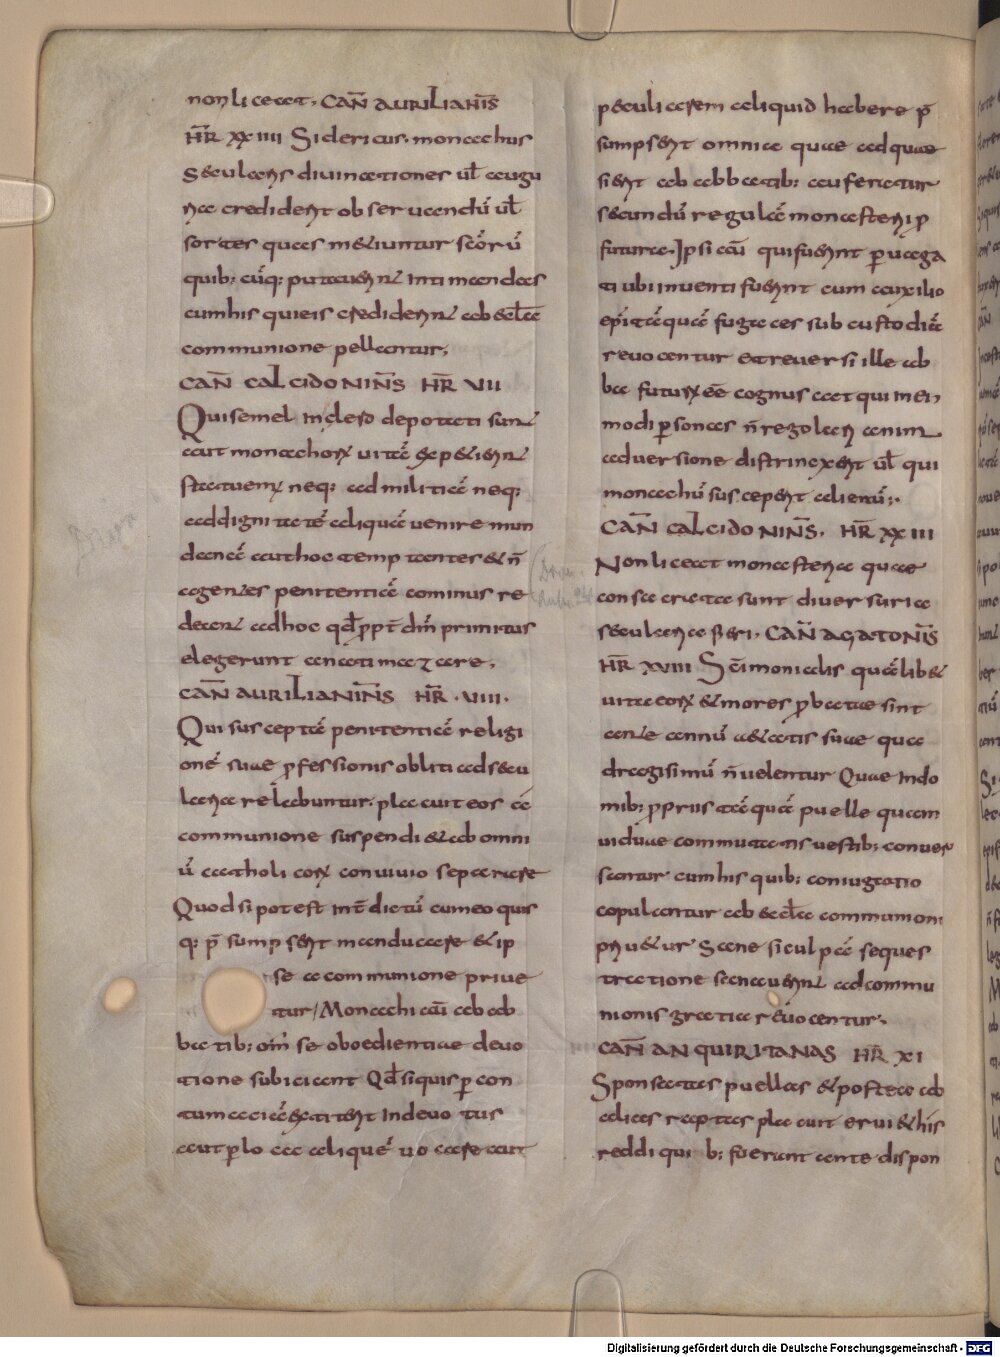 non liceat, CAÑ AURILIANIS̄
HR̄ XXIIII Siclericus. monachus
Saecularis divinationes ul̄ augu
ria crediderit observandū ul̄
sortes quas mentiuntur sc̄orū
quib; cūq; putauerint intimandas
cum his qui eis crediderint ab ecl̄ae
communione pellantur,
CAÑ CALCIDONINS̄ HR̄ VII
Qui semel In clero deputati sunt
aut monachorum uitā expetierint
statuerunt neq; ad militiā neq;
ad dignitatē aliquā uenire mun
danā aut hoc temptantes & n̄
agentes penitentiā cominus re
deant ad hoc qd̄ ppt̄ dm̄ primitus
elegerunt anatimatzare,
CAÑ AURILIANINS̄ HR̄ .VIII.
Qui susceptā penitentiā religi
onē suae professionis obliti ad saecu
laria relabuntur. placuit eos ēē
communione suspendi & ab omni
ū catholicorum conuiuio separare
Quod si potest Int̄dictū cum eo quis
q; p̄sumpserit manducare & ip
se a communione priue
tur, Monachi aū ab ab
batib; om̄i se oboedientiae deuo
tione subiciant Qd̄ siquis per con
tumaciā extiterit Indeuotus
aut per loca aliquā uacare aut
peculiarem aliquid habere p̄
sumpserit omnia quae adquae
sierit ab abbatib; auferatur
secundū regulā monasterii p
futura. Ipsi aū qui fuerint peruaga
ti ubi inuenti fuerint cum auxilio
epī tāquā fugaces sub custodiā
reuocentur et reuersi ille ab
ba futurum ēē cognuscat qui In ei,
modi personas n̄ regolari anim
aduersione distrinxerit ul̄ qui
monachū susceperit alienū;.
CAÑ CALCIDONINS̄. HR̄ XXIII
Non liceat monasteria quae
consaecrata sunt diuersuria
saecularia fieri, CAÑ AGATONIS̄
HR̄ XVIII Sc̄imonialis quālib&
uita eorum & mores probatae sint
ante annū aetatis suae qua
dragisimū n̄ uelentur Quae Indo
mib; propriis tāquā puelle quam
uiduae commutatis uestib; conuer
santur cum his quib; coniugatio
copulantur ab ecl̄ae communioni
priuetur Sane si culpā seques
tratione sanauerint ad commu
nionis gratia reuocentur.
CAÑ ANQUIRITANAS HR̄ XI
Sponsatas puellas & postea ab
alies raptas placuit erui & his
reddi quib; fuerant ante dispon